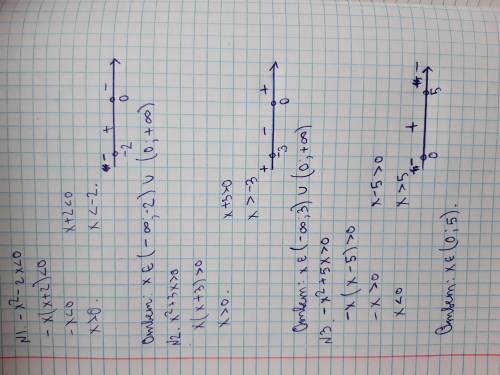 N1. -x² - 2x<0
-x(x+2)<0
-x<0 x+2<0
x>0. x<-2.
- + -
-2 0
Ответ: x ∈ (-∞;-2) ∪ (0;+∞)
N2. x²+3x>0
x(x+3)>0
x>0. x+3>0
x>-3
+ - +
-3 0
Ответ: x ∈ (-∞;3) ∪ (0;+∞)
N3. -x²+5x>0
-x(x-5)>0
-x>0 x-5>0
x<0 x>5
- + -
0 5
Ответ: x ∈ (0; 5).